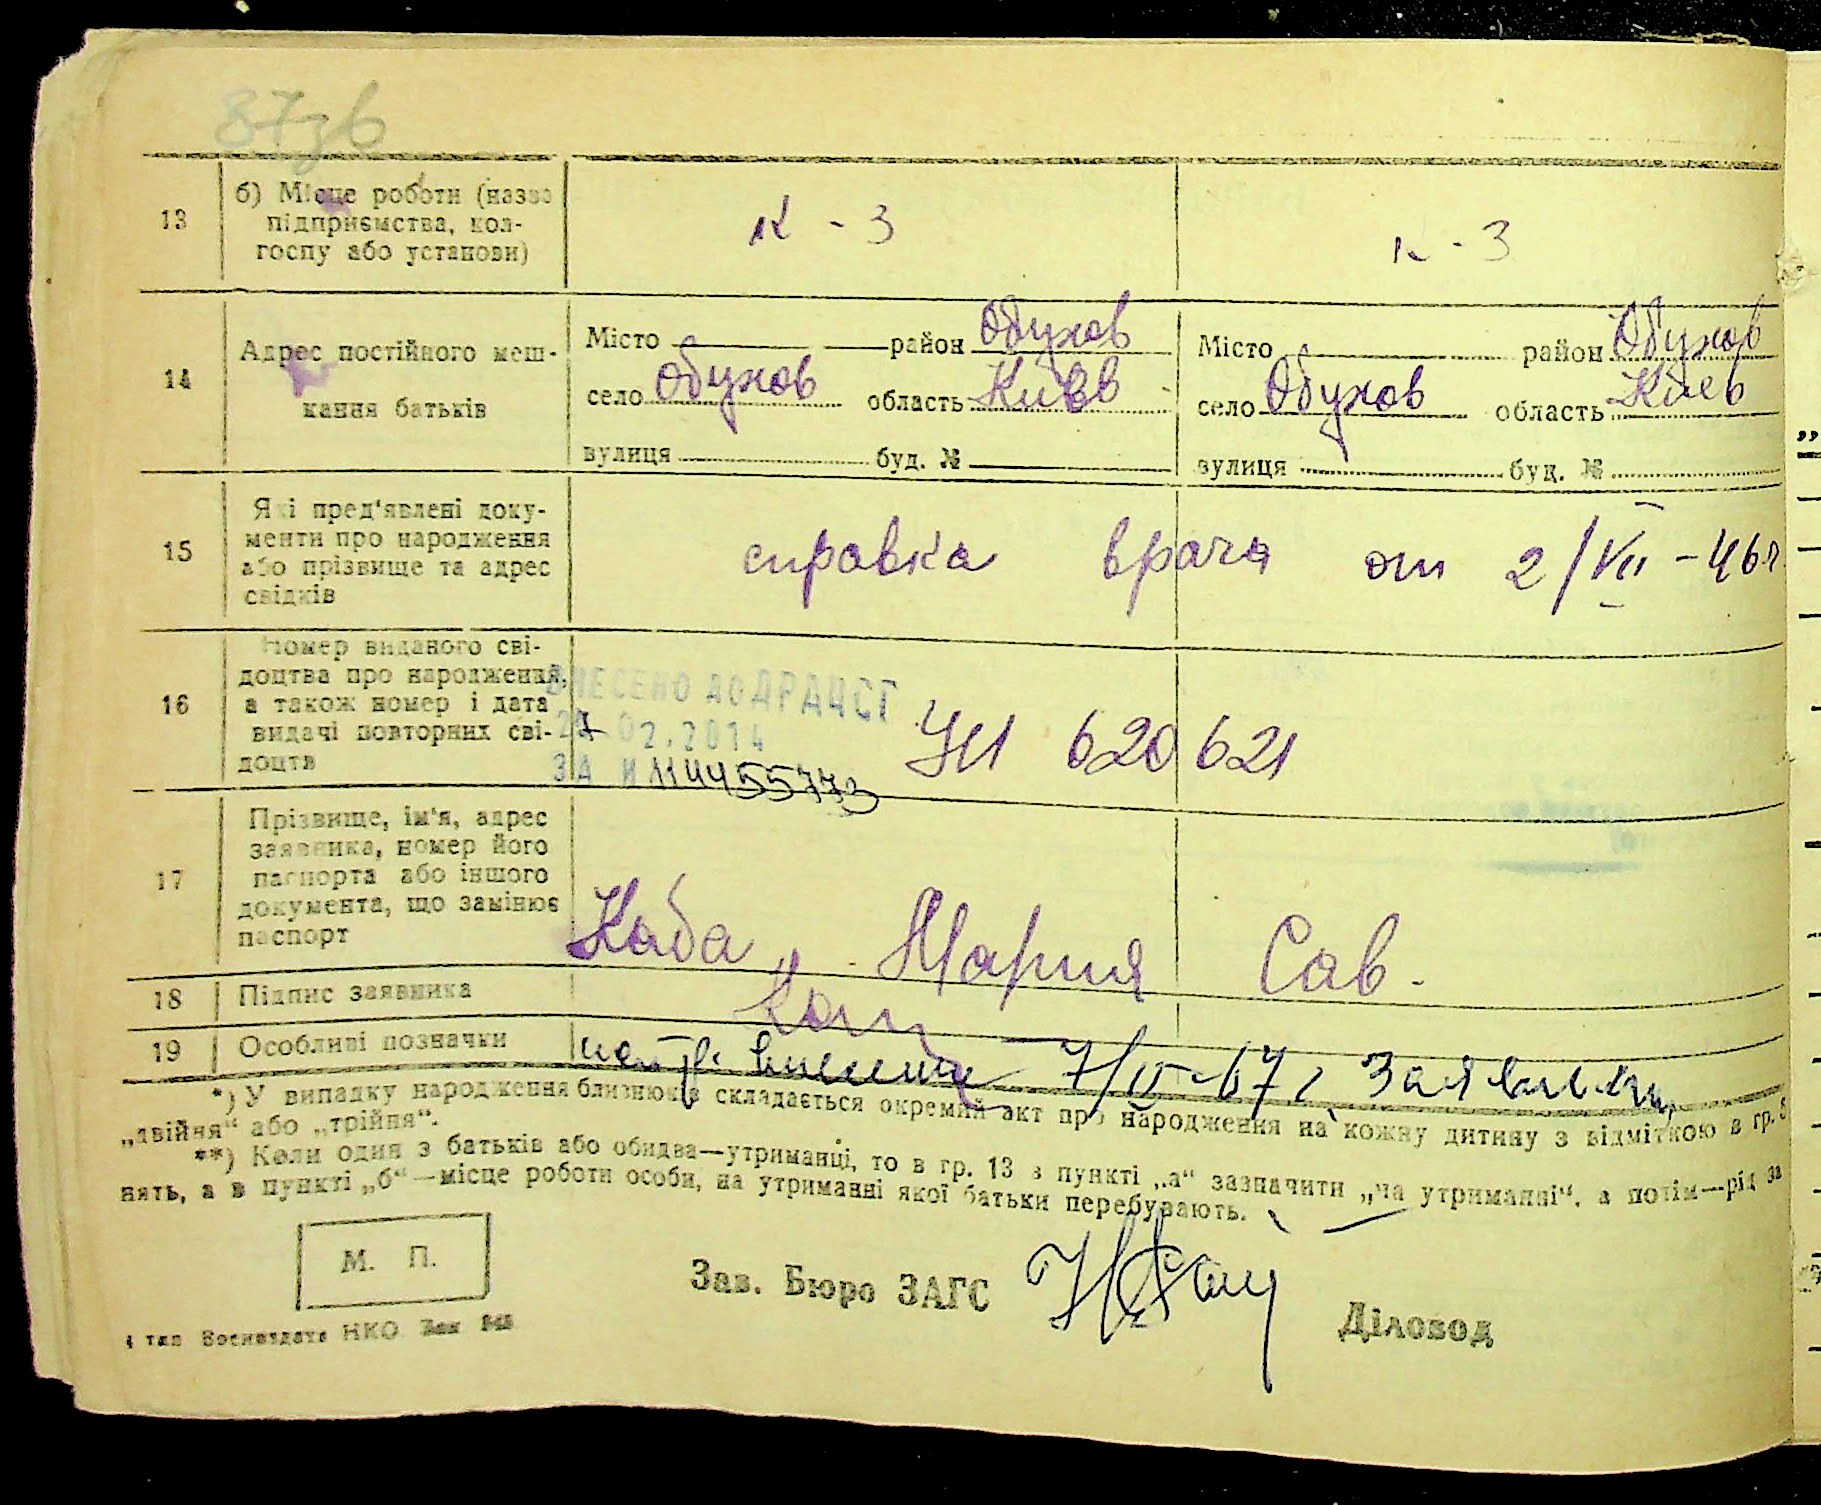 87зв
13
б) Місце роботи (назва
підприємства, кол-
госпу або установи)
к - з
к - з
14
Адрес постійного меш-
кання батьків
Місто район Обухов
село Обухов область Киев
вулиця буд. №
Місто район Обухов
село Обухов область Киев
вулиця буд. №
15
Які пред'явлені доку-
менти про народження
або прізвище та адрес
свідків
справка врача от 2/VII - 46 г.
16
Номер виданого сві-
доцтва про народження,
а також номер і дата
видачі повторних сві-
доцтв
ВНЕСЕНО ДО ДРАЦСГ
02.2014
ЗА № 114455773
УЛ 620621
17
Прізвище, ім'я, адрес
заявника, номер його
паспорта або іншого
документа, що замінює
паспорт
Каба Мария Сав.
18
Підпис заявника
19
Особливі позначки
7/II-67 г.
*) У випадку народження близнюків складається окремий акт про народження на кожну дитину з відміткою в гр.
„двійня“ або „трійня“.
**) Коли один з батьків або обидва—утриманці, то в гр. 13 в пункті „а“ зазначити „на утриманні“, а потім—рід за
нять, а в пункті „б“—місце роботи особи, на утриманні якої батьки перебувають.
М. П.
Зав. Бюро ЗАГС
Діловод
тип Воениздата НКО Зак